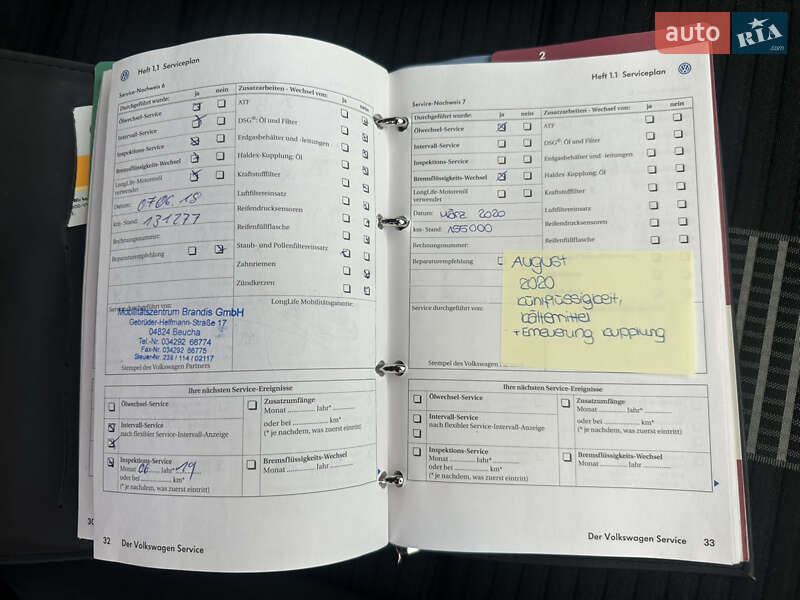 auto RIA.com
2
Heft 1.1 Serviceplan
Service-Nachweis 6
Durchgeführt wurde: ja nein
Ölwechsel-Service
Intervall-Service
Inspektions-Service
Bremsflüssigkeits-Wechsel
LongLife-Motorenöl
verwendet
Datum: 07.06.18
km-Stand: 131277
Rechnungsnummer:
Reparaturempfehlung
Zusatzarbeiten - Wechsel von: ja nein
ATF
DSG®: Öl und Filter
Erdgasbehälter und -leitungen
Haldex-Kupplung: Öl
Kraftstofffilter
Luftfiltereinsatz
Reifendrucksensoren
Reifenfüllflasche
Staub- und Pollenfiltereinsatz
Zahnriemen
Zündkerzen
Service durchgeführt von:
LongLife Mobilitätsgarantie:
Mobilitätszentrum Brandis GmbH
Gebrüder-Helfmann-Straße 17
04824 Beucha
Tel.-Nr. 034292 68774
Fax-Nr. 034292 66775
Steuer-Nr. 238 / 114 / 02117
Stempel des Volkswagen Partners
Ihre nächsten Service-Ereignisse
Ölwechsel-Service
Intervall-Service
nach flexibler Service-Intervall-Anzeige
Inspektions-Service
Monat 06 Jahr* 19
oder bei km*
(* je nachdem, was zuerst eintritt)
Zusatzumfänge
Monat Jahr*
oder bei km*
(* je nachdem, was zuerst eintritt)
Bremsflüssigkeits-Wechsel
Monat Jahr
30
32 Der Volkswagen Service
Heft 1.1 Serviceplan
Service-Nachweis 7
Durchgeführt wurde: ja nein
Ölwechsel-Service
Intervall-Service
Inspektions-Service
Bremsflüssigkeits-Wechsel
LongLife-Motorenöl
verwendet
Datum: März 2020
km-Stand: 155000
Rechnungsnummer:
Reparaturempfehlung
Zusatzarbeiten - Wechsel von: ja nein
ATF
DSG®: Öl und Filter
Erdgasbehälter und -leitungen
Haldex-Kupplung: Öl
Kraftstofffilter
Luftfiltereinsatz
Reifendrucksensoren
Reifenfüllflasche
August
2020
Kühlflüssigkeit,
Kältemittel
+ Erneuerung Kupplung
Service durchgeführt von:
Stempel des Volkswagen
Ihre nächsten Service-Ereignisse
Ölwechsel-Service
Intervall-Service
nach flexibler Service-Intervall-Anzeige
Inspektions-Service
Monat Jahr*
oder bei km*
(* je nachdem, was zuerst eintritt)
Zusatzumfänge
Monat Jahr*
oder bei km*
(* je nachdem, was zuerst eintritt)
Bremsflüssigkeits-Wechsel
Monat Jahr
Der Volkswagen Service 33